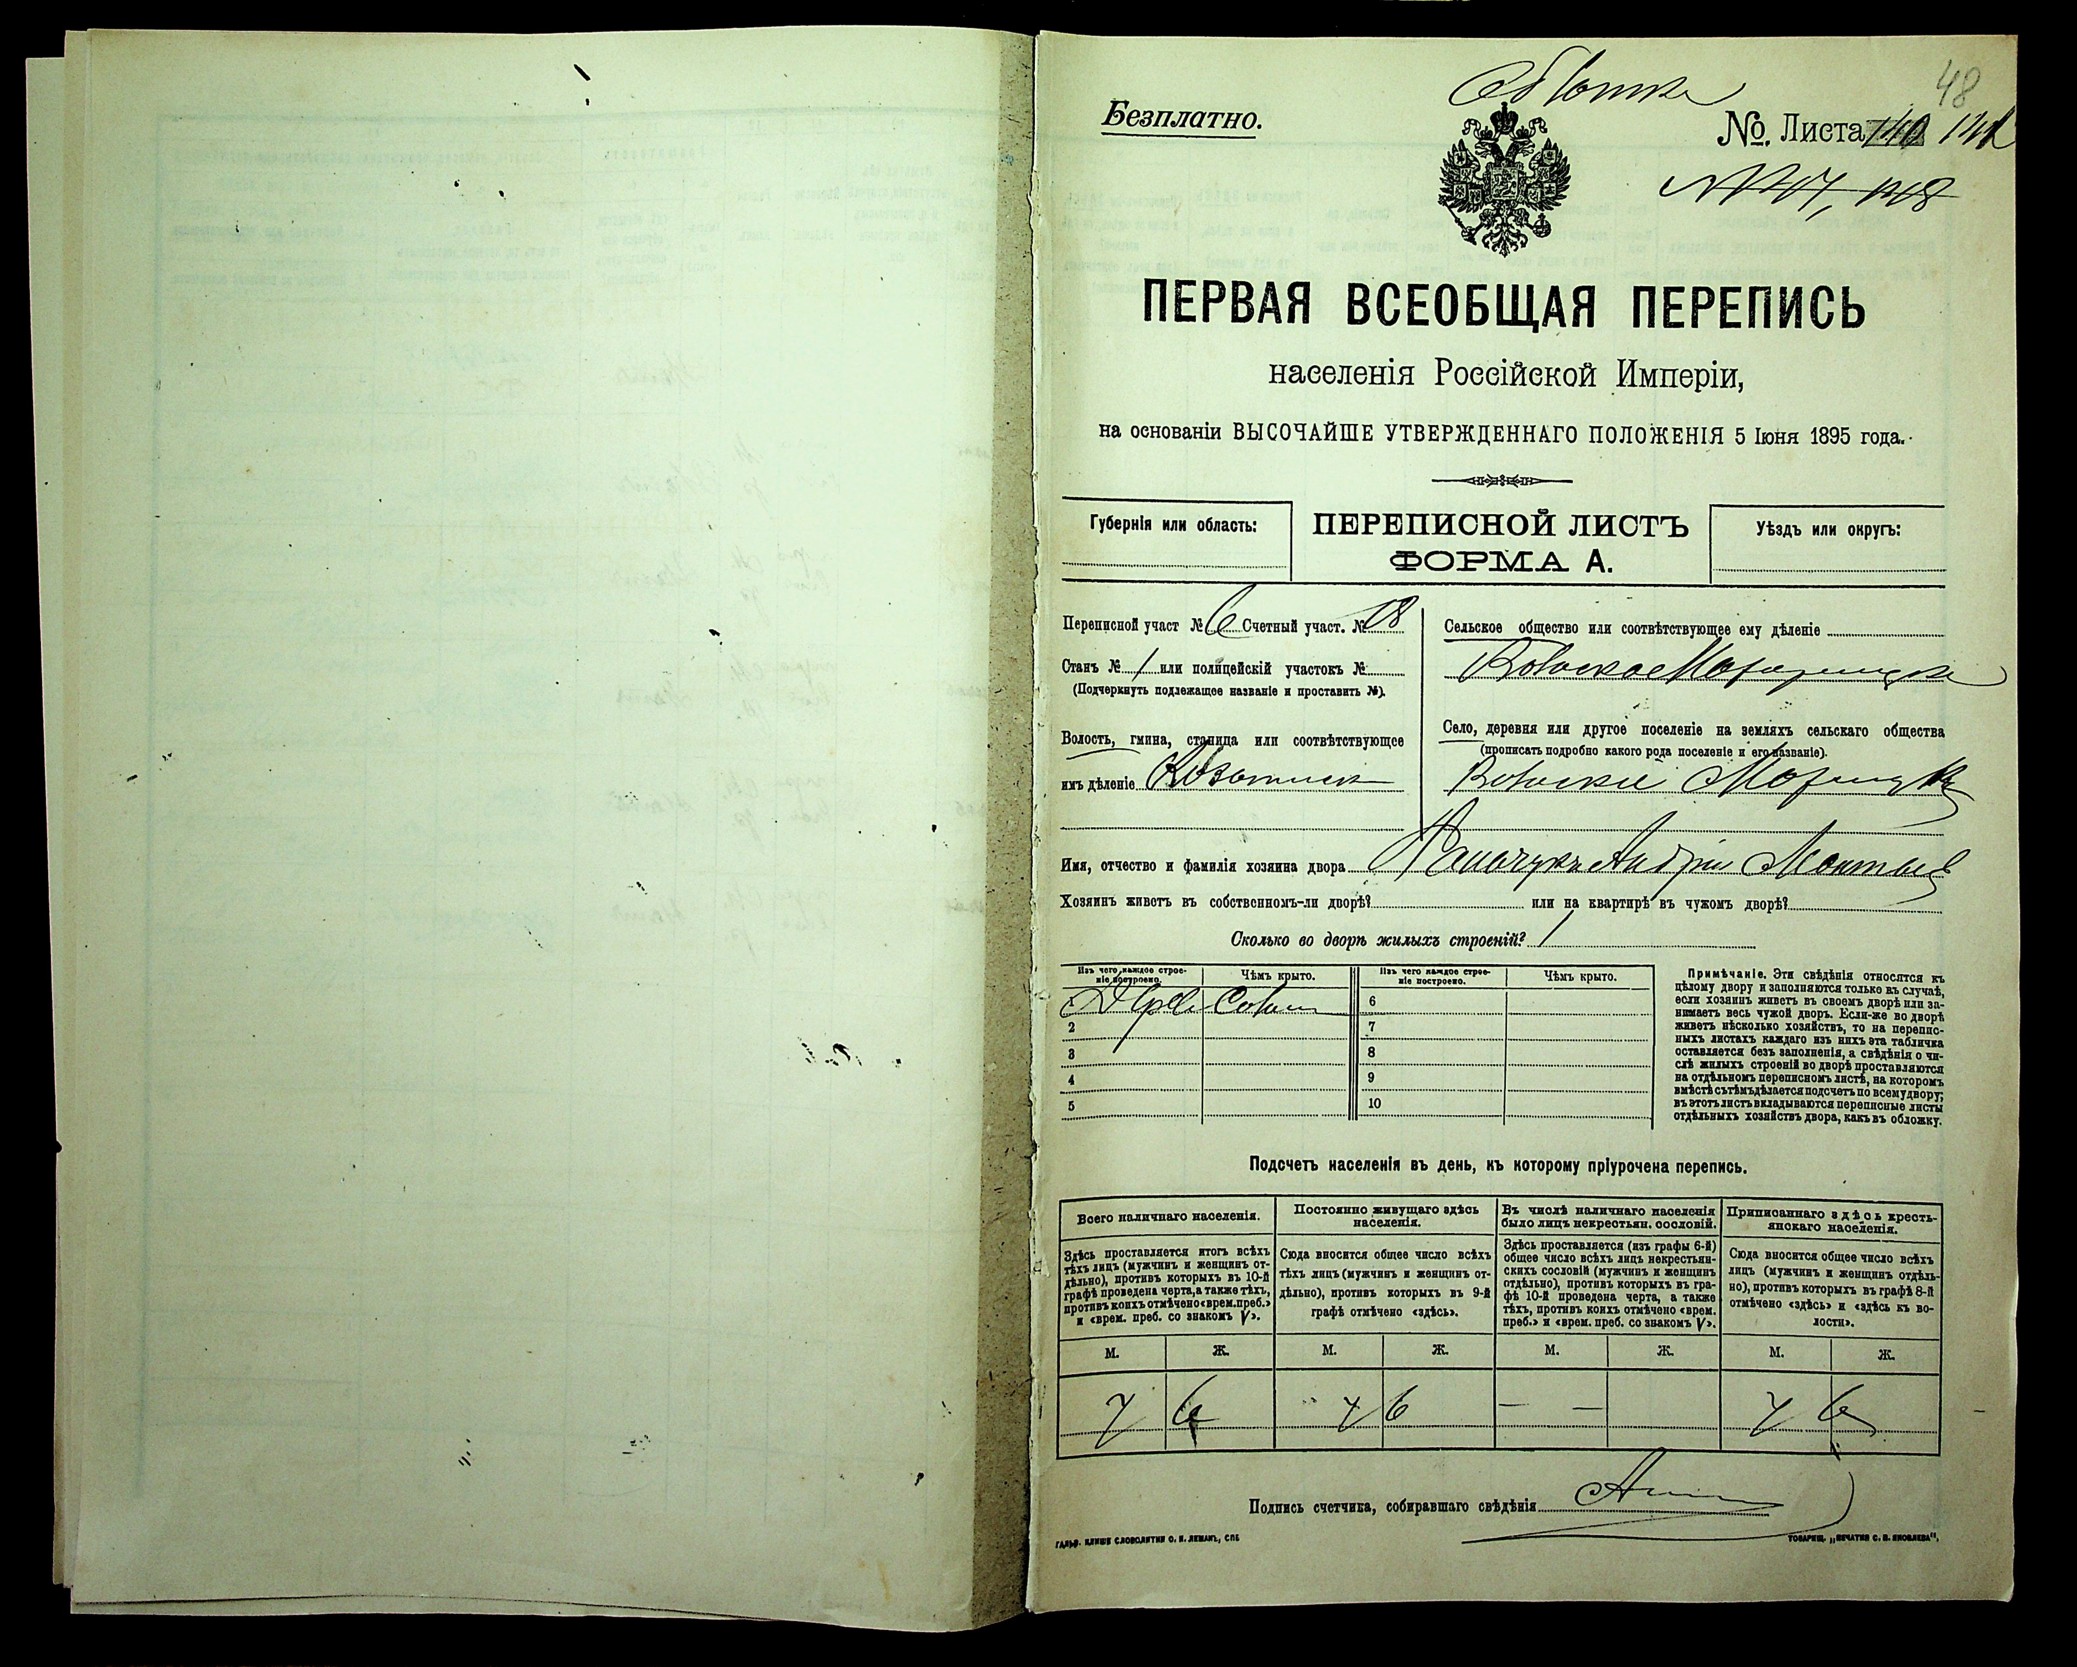 48
Безплатно.
№ Листа 141
ПЕРВАЯ ВСЕОБЩАЯ ПЕРЕПИСЬ
населенія Россійской Имперіи,
на основаніи ВЫСОЧАЙШЕ УТВЕРЖДЕННАГО ПОЛОЖЕНІЯ 5 Іюня 1895 года.
Губернія или область:
ПЕРЕПИСНОЙ ЛИСТЪ
ФОРМА А.
Уѣздъ или округъ:
Переписной участ № 6 Счетный участ. № 18
Станъ № 1 или полицейскій участокъ №
(Подчеркнуть подлежащее названіе и проставить №).
Волость, гмина, станица или соотвѣтствующее
имъ дѣленіе
Сельское общество или соотвѣтствующее ему дѣленіе
Село, деревня или другое поселеніе на земляхъ сельскаго общества
(прописать подробно какого рода поселеніе и его названіе).
Имя, отчество и фамилія хозяина двора
Хозяинъ живетъ въ собственномъ-ли дворѣ? или на квартирѣ въ чужомъ дворѣ?
Сколько во дворѣ жилыхъ строеній? 1
Изъ чего каждое строе-
ніе построено.
Чѣмъ крыто.
Изъ чего каждое строе-
ніе построено.
Чѣмъ крыто.
6
2
7
3
8
4
9
5
10
Примѣчаніе. Эти свѣдѣнія относятся къ
цѣлому двору и заполняются только въ случаѣ,
если хозяинъ живетъ въ своемъ дворѣ или за-
нимаетъ весь чужой дворъ. Если-же во дворѣ
живетъ нѣсколько хозяйствъ, то на перепис-
ныхъ листахъ каждаго изъ нихъ эта табличка
оставляется безъ заполненія, а свѣдѣнія о чи-
слѣ жилыхъ строеній во дворѣ проставляются
на отдѣльномъ переписномъ листѣ, на которомъ
вмѣстѣ съ тѣмъ дѣлается подсчетъ по всему двору;
въ этотъ листъ вкладываются переписные листы
отдѣльныхъ хозяйствъ двора, какъ въ обложку.
Подсчетъ населенія въ день, къ которому пріурочена перепись.
Всего наличнаго населенія.
Здѣсь проставляется итогъ всѣхъ
тѣхъ лицъ (мужчинъ и женщинъ от-
дѣльно), противъ которыхъ въ 10-й
графѣ проведена черта, а также тѣхъ,
противъ коихъ отмѣчено «врем. преб.»
и «врем. преб. со знакомъ V».
Постоянно живущаго здѣсь
населенія.
Сюда вносится общее число всѣхъ
тѣхъ лицъ (мужчинъ и женщинъ от-
дѣльно), противъ которыхъ въ 9-й
графѣ отмѣчено «здѣсь».
Въ числѣ наличнаго населенія
было лицъ некрестьян. сословій.
Здѣсь проставляется (изъ графы 6-й)
общее число всѣхъ лицъ некрестьян-
скихъ сословій (мужчинъ и женщинъ
отдѣльно), противъ которыхъ въ гра-
фѣ 10-й проведена черта, а также
тѣхъ, противъ коихъ отмѣчено «врем.
преб.» и «врем. преб. со знакомъ V».
Приписаннаго здѣсь кресть-
янскаго населенія.
Сюда вносится общее число всѣхъ
лицъ (мужчинъ и женщинъ отдѣль-
но), противъ которыхъ въ графѣ 8-й
отмѣчено «здѣсь» и «здѣсь къ во-
лости».
М. Ж. М. Ж. М. Ж. М. Ж.
7 6 7 6 — — 7 6
Подпись счетчика, собиравшаго свѣдѣнія
ГАЛЬВ. КЛИШЕ СЛОВОЛИТНИ О. И. ЛЕМАНЪ, СПБ
ТОВАРИЩ. „ПЕЧАТНЯ С. П. ЯКОВЛЕВА“,